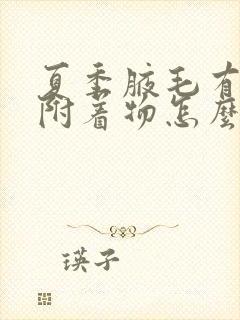 夏季腋毛有
附着物怎麼
瑛子